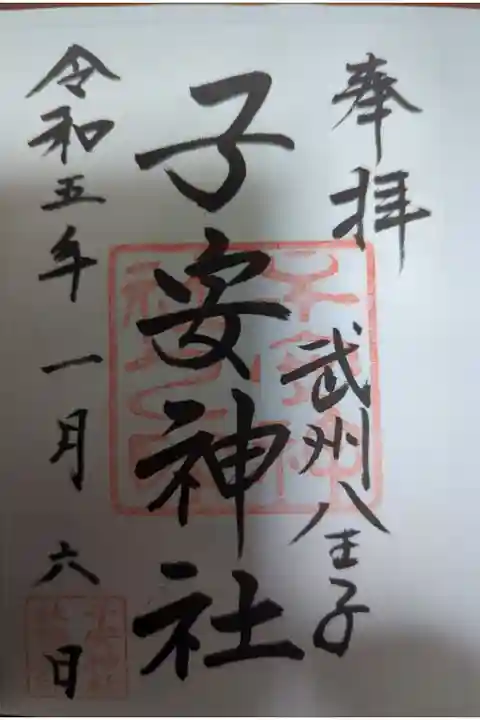 奉拝
武州八王子
子安神社
令和五年一月六日